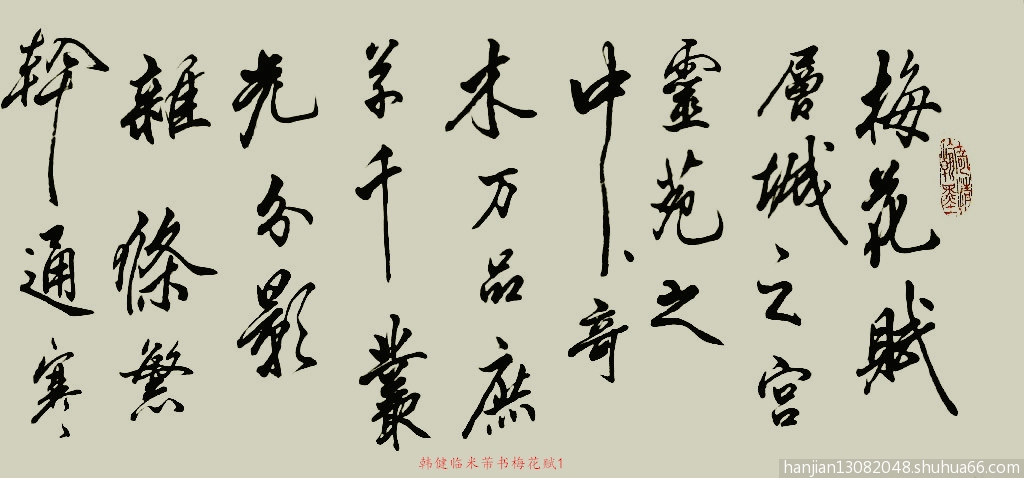 梅花賦
層城之宮
靈苑之
中奇
木万品庶
草千叢
光分影
雜條繁
幹通寒
韩健临米芾书梅花赋1
hanjian13082048.shuhua66.com